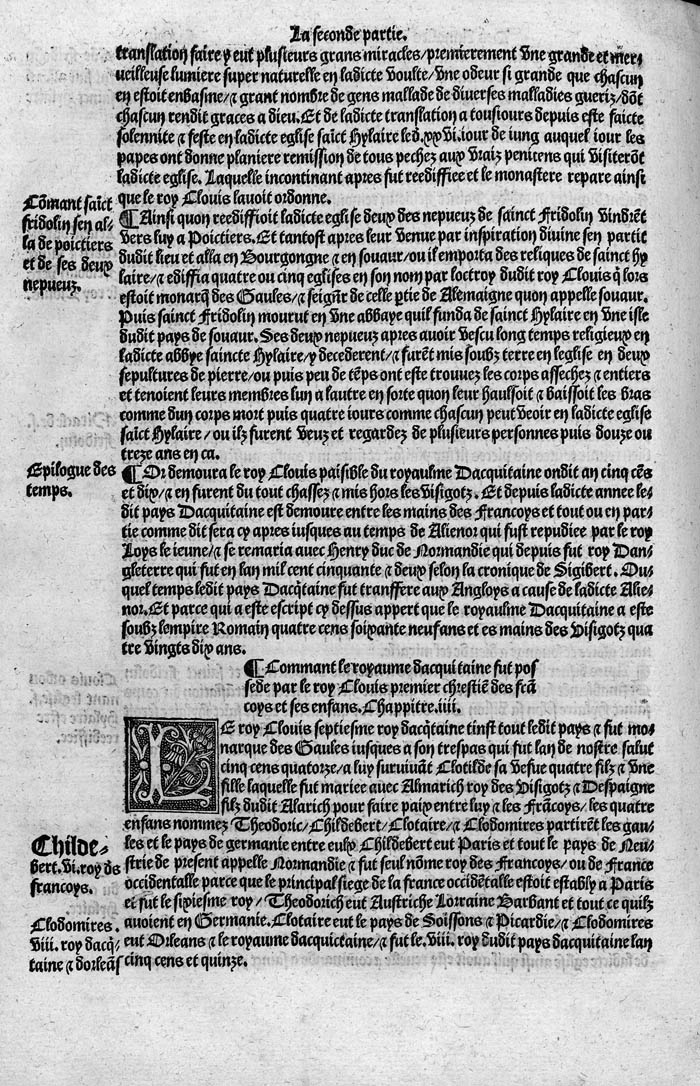 La seconde partie.
translation faire y eut plusieurs grans miracles/premierement vne grande et mer⸗
ueilleuse lumiere super naturelle en ladicte voulte/vne odeur si grande que chascun
en estoit enbasine/⁊ grant nombre de gens mallade de diuerses malladies gueriz/dõt
chascun rendit graces a dieu. Et de ladicte translation a tousiours depuis este faicte
solennite ⁊ feste en ladicte eglise saīct Hylaire le d.xxvi.iour de iung auquel iour les
papes ont donne planiere remission de tous pechez aux vraiz penitens qui visiterõt
ladicte eglise. Laquelle incontinant apres fut reediffiee et le monastere repare ainsi
que le roy Clouis lauoit ordonne.
Cõmant saīct
fridolin sen al⸗
la de poictiers
et de ses deux
nepueuz.
¶Ainsi quon reediffioit ladicte eglise deux des nepueuz de sainct Fridolin vindrẽt
vers luy a Poictiers. Et tantost apres leur venue par inspiration diuine sen partit
dudit lieu et alla en Bourgongne ⁊ en souaur/ou il emporta des reliques de sainct hy
laire/⁊ ediffia quatre ou cinq eglises en son nom par loctroy dudit roy Clouis q̃ lors
estoit monarq̃ des Gaules/⁊ seigñr de celle ꝑtie de Alemaigne quon appelle souaur.
Puis sainct Fridolin mourut en vne abbaye quil funda de sainct Hylaire en vne isle
dudit pays de souaur. Ses deux nepueuz apres auoir vescu long temps religieux en
ladicte abbye saincte Hylaire/y decederent/⁊ furẽt mis soubz terre en leglise en deux
sepultures de pierre/ou puis peu de tẽps ont este trouuez les corps assechez ⁊ entiers
et tenoient leurs membres lun a lautre en sorte quon leur haulsoit ⁊ baissoit les bras
comme dun corps mort puis quatre iours comme chascun peut veoir en ladicte eglise
saīct Hylaire/ou ilz furent veuz et regardez de plusieurs personnes puis douze ou
treze ans en ca.
Epilogue des
temps.
¶Or demoura le roy Clouis paisible du royaulme Dacquitaine ondit an cinq cẽs
et dix/⁊ en furent du tout chassez ⁊ mis hors les visigotz. Et depuis ladicte annee le⸗
dit pays Dacquitaine est demoure entre les mains des Francoys et tout ou en par⸗
tie comme dit sera cy apres iusques au temps de Alienor qui fust repudiee par le roy
Loys le ieune/⁊ se remaria auec Henry duc de Normandie qui depuis fut roy Dan⸗
gleterre qui fut en lan mil cent cinquante ⁊ deux selon la cronique de Sigibert. Ou⸗
quel temps ledit pays Dacq̃taine fut transffere aux Angloys a cause de ladicte Alie⸗
nor. Et parce qui a este escript cy dessus appert que le royaulme Dacquitaine a este
soubz lempire Romain quatre cens soixante neuf ans et es mains des Visigotz qua
tre vingts dix ans.
¶Commant le royaume dacquitaine fut pos
sede par le roy Clouis premier chrestiẽ des frã
coys et ses enfans. Chappitre.iiii.
LE roy Clouis septiesme roy dacq̃taine tinst tout ledit pays ⁊ fut mo⸗
narque des Gaules iusques a son trespas qui fut lan de nostre salut
cinq cens quatorze/a luy suruiuãt Clotilde sa vefue quatre filz ⁊ vne
fille laquelle fut mariee auec Almarich roy des Visigotz ⁊ Despaigne
filz dudit Alarich pour faire paix entre luy ⁊ les Frãcoys/les quatre
enfans nommez Theodoric/Childebert/Clotaire/⁊ Clodomires partirẽt les gau⸗
Childe⸗
bert.vi.roy ds
francoys.
les et le pays de germanie entre eulx Childebert eut Paris et tout le pays de Neu⸗
strie de present appelle Normandie ⁊ fut seul nõme roy des Francoys/ou de France
occidentalle parce que le principal siege de la france occidẽtalle estoit estably a Paris
et fut le sixiesme roy/Theodorich eut Austriche Lorraine Barbant et tout ce quilz
Clodomires.
viii.roy dacq̃⸗
taine ⁊ dorleãs
auoient en Germanie. Clotaire eut le pays de Soissons ⁊ Picardie/⁊ Clodomires
eut Orleans ⁊ le royaume dacquictaine/⁊ fut le.viii. roy dudit pays dacquitaine lan
cinq cens et quinze.